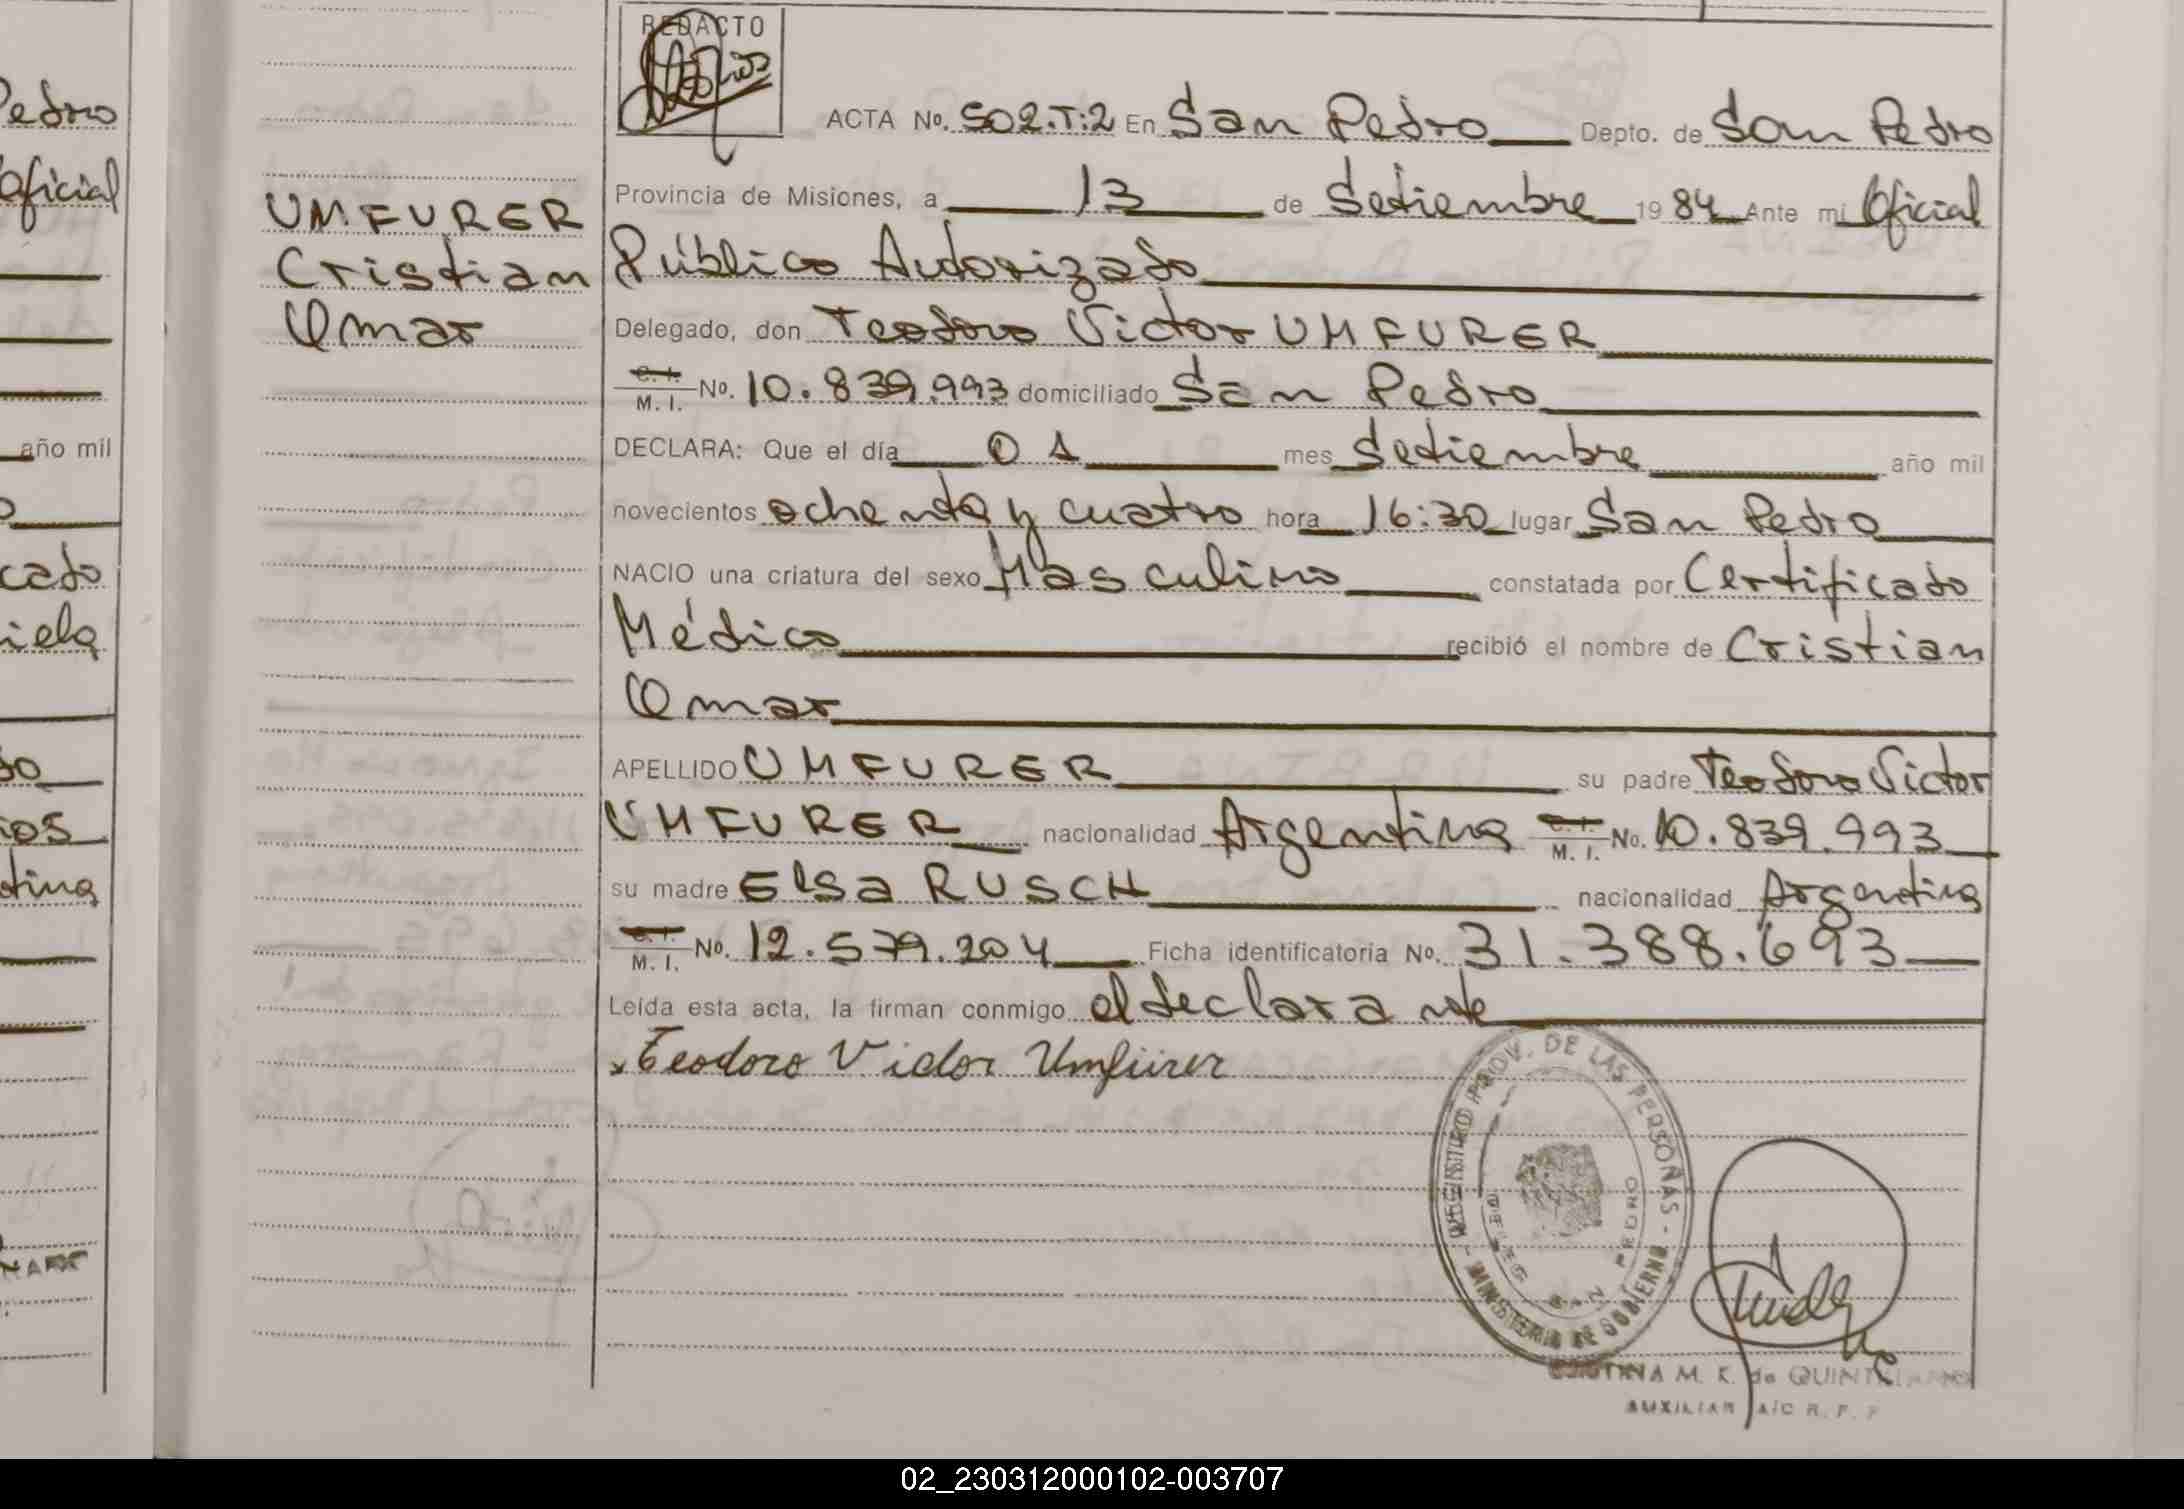 Pedro
Oficial
año mil
cado
iela
do
ios
tina
UMFURER
Cristian
Omar
REDACTO
ACTA No. 502.T:2 En San Pedro Depto. de San Pedro
Provincia de Misiones, a 13 de Setiembre 19 84 Ante mi Oficial
Público Autorizado
Delegado, don Teodoro Victor UMFURER
C. I. M. I. No. 10.839.993 domiciliado San Pedro
DECLARA: Que el día 01 mes Setiembre año mil
novecientos ochenta y cuatro hora 16:30 lugar San Pedro
NACIO una criatura del sexo Masculino constatada por Certificado
Médico recibió el nombre de Cristian
Omar
APELLIDO UMFURER su padre Teodoro Victor
UMFURER nacionalidad Argentina C. I. M. I. No. 10.839.993
su madre Elsa RUSCH nacionalidad Argentina
C. I. M. I. No. 12.579.204 Ficha identificatoria No. 31.388.693
Leída esta acta, la firman conmigo el declarante
x Teodoro Victor Umfürer
REGISTRO PROV. DE LAS PERSONAS - MINISTERIO DE GOBIERNO -
SAN PEDRO
M. K. de QUINTELIANO
AUXILIAR A/C R. P. P
02_230312000102-003707